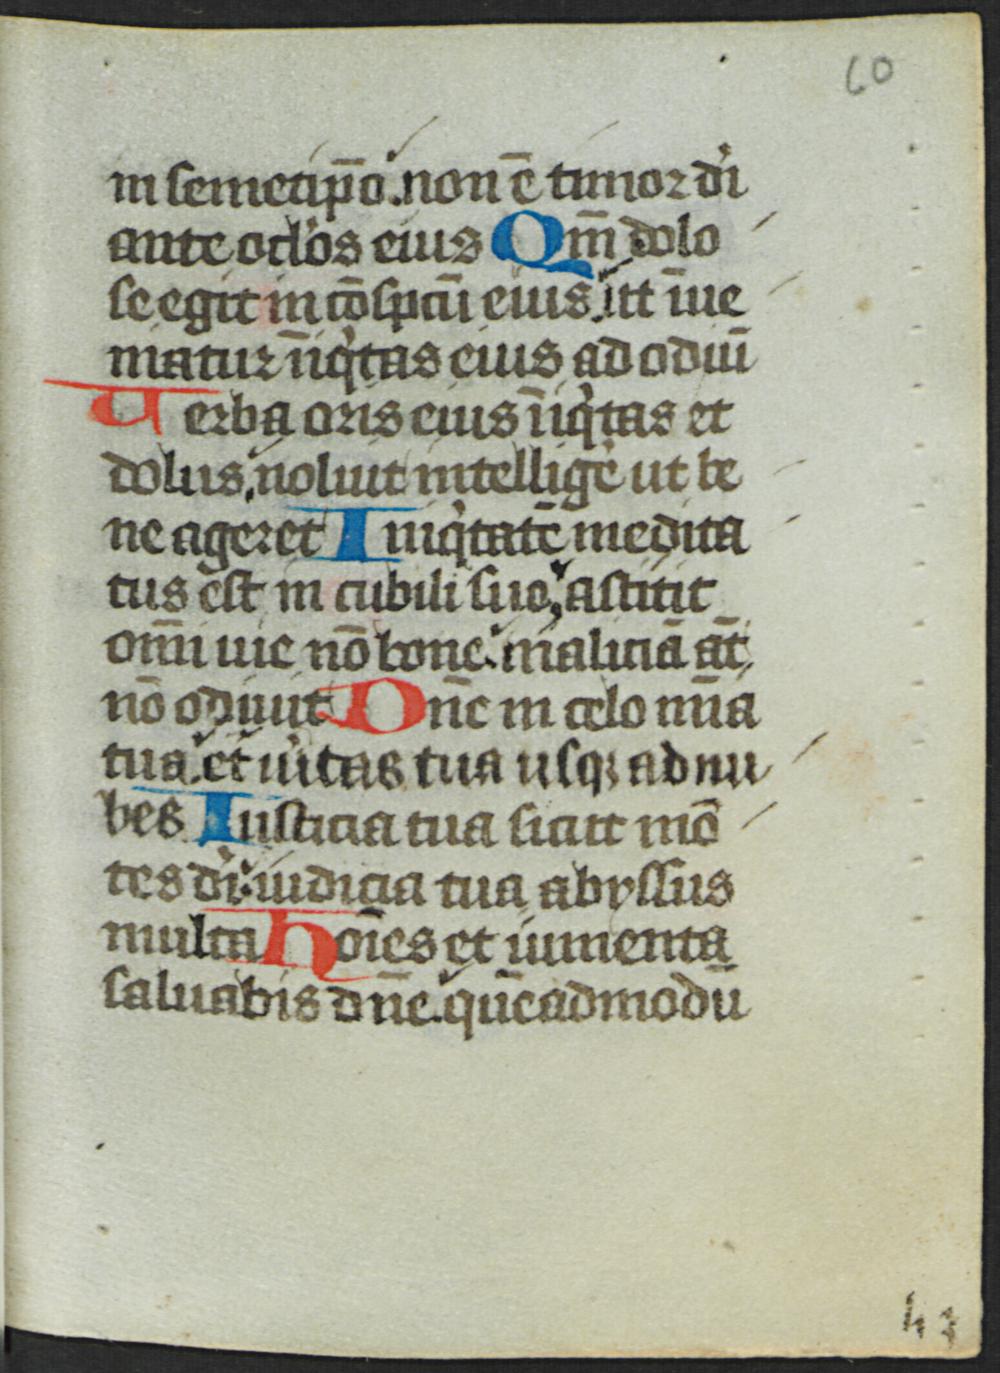 60
in semetip̄o. non ē timor di̾
ante ocl̾os eius Qm̄ dolo
se egit in cōspcū eius. ut īue
niatur īiq̾tas eius ad odiū
Verba oris eius īiq̾tas et
dolus, noluit intellige̾ ut be
ne ageret Iniq̾tatē medita
tus est in cubili suo, astitit
om̄i uie nō bone. maliciā at̄
nō odiuit Dn̄e in celo mīa
tua. et ui̾tas tua usqꝫ ad nu
bes Iusticia tua sicut mō
tes di̾. iudicia tua abyssus
multa hoīes et iumenta
saluabis dn̄e. quēadmodū